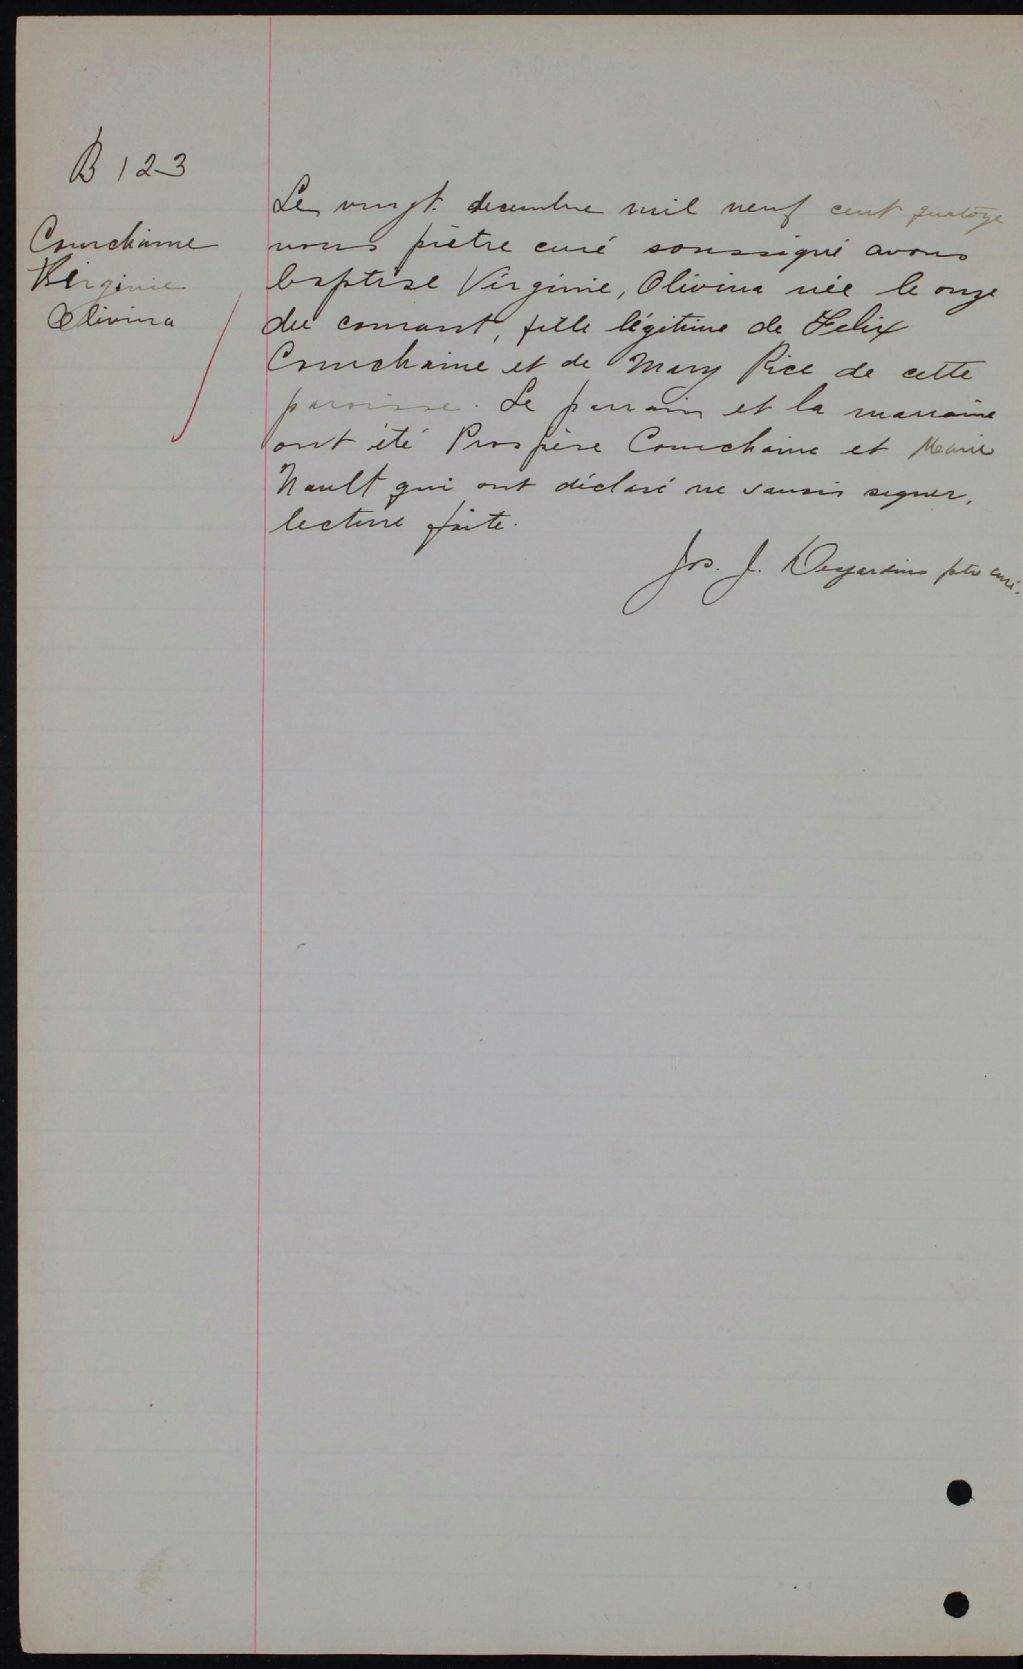 B 123
Courchaine
Virginie
Olivina
Le vingt decembre mil neuf cent quatorze
nous prêtre curé soussigné avons
baptisé Virginie, Olivina née le onze
du courant, fille légitime de Felix
Courchaine et de Mary Rice de cette
paroisse. Le parrain et la marraine
ont été Prospère Courchaine et Marie
Nault qui ont déclaré ne savoir signer,
lecture faite.
Jos. J. Desjardins ptre curé.